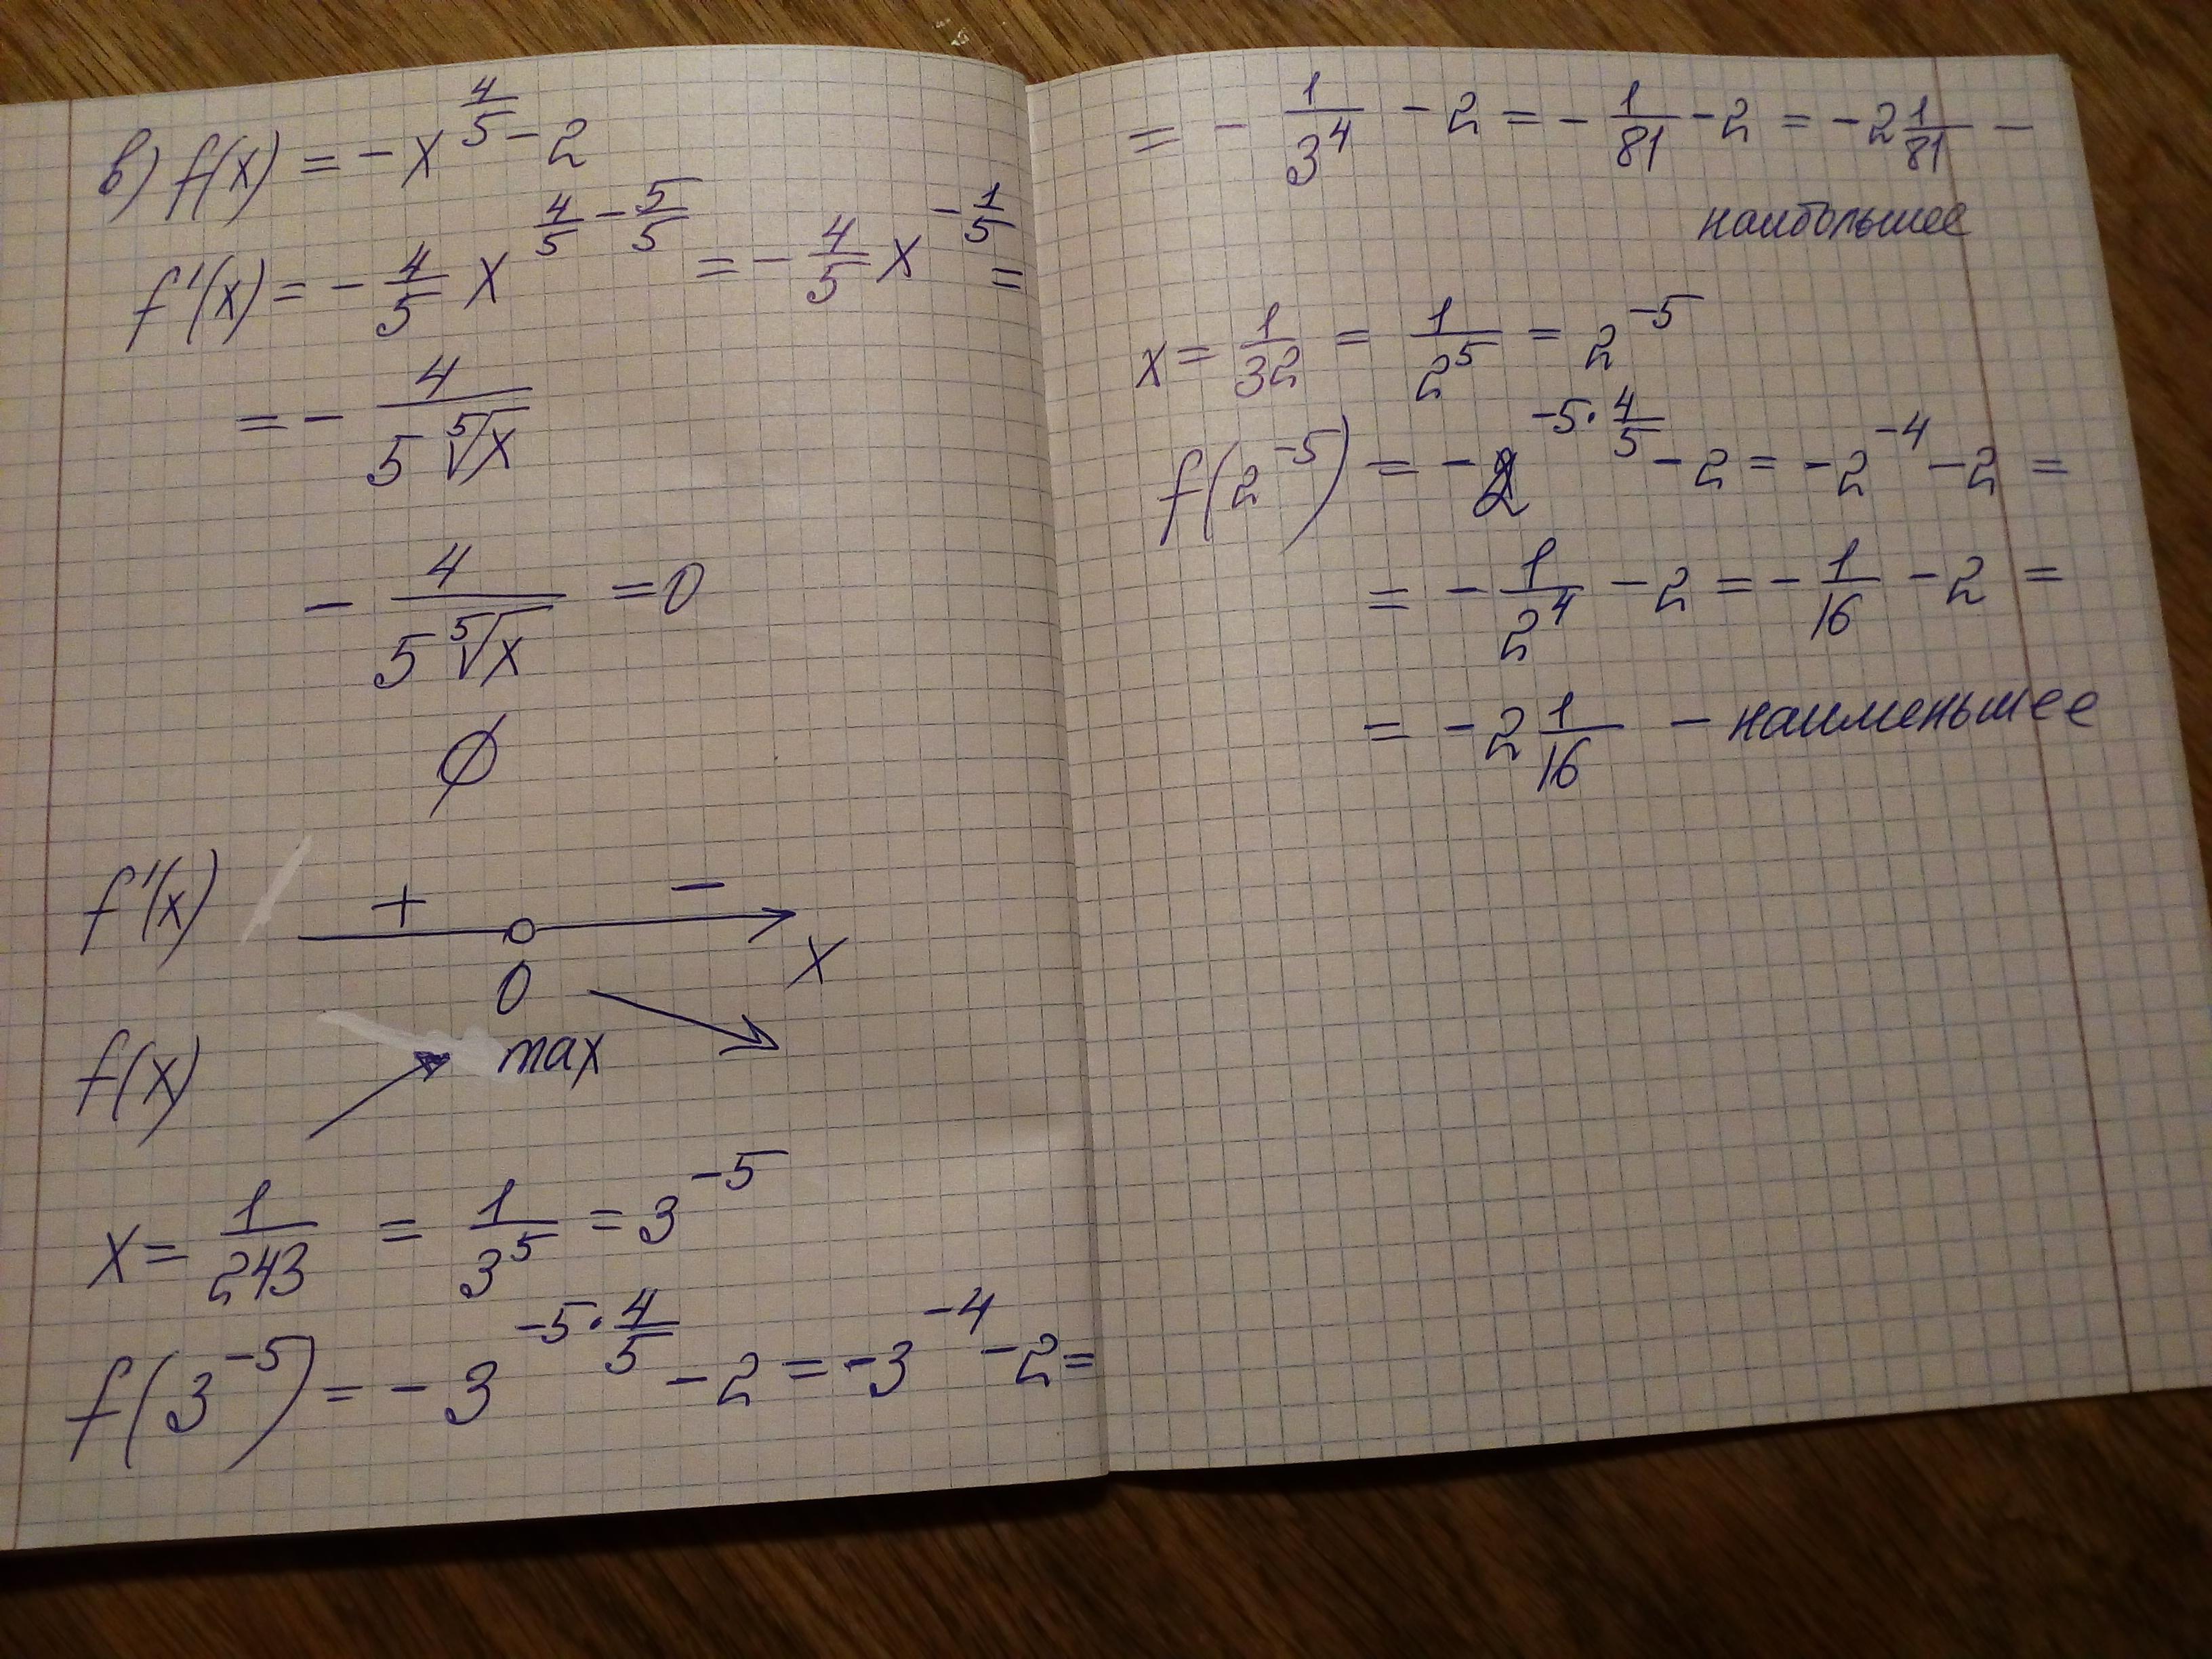 в) f(x) = -x^(4/5) - 2
f'(x) = - 4/5 x^(4/5 - 5/5) = - 4/5 x^(-1/5) =
= - 4/(5 ⁵√x)
- 4/(5 ⁵√x) = 0
∅
f'(x) + - x
0
f(x) max
x = 1/243 = 1/3^5 = 3^(-5)
f(3^(-5)) = -3^(-5·4/5) - 2 = -3^(-4) - 2 =
= - 1/3^4 - 2 = - 1/81 - 2 = -2 1/81 -
наибольшее
x = 1/32 = 1/2^5 = 2^(-5)
f(2^(-5)) = -2^(-5·4/5) - 2 = -2^(-4) - 2 =
= - 1/2^4 - 2 = - 1/16 - 2 =
= -2 1/16 - наименьшее